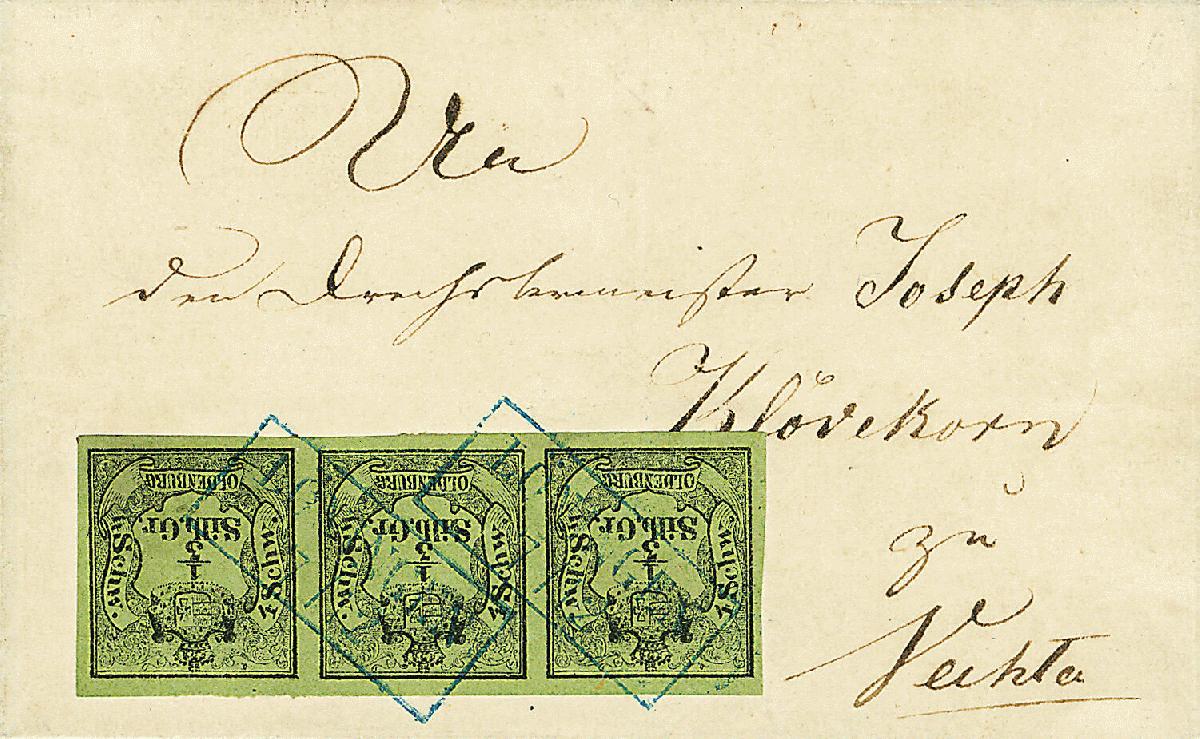 An
den Drechslermeister Joseph
Klövekorn
zu
Vechta
OLDENBURG OLDENBURG OLDENBURG
Silb.Gr. Silb.Gr. Silb.Gr.
1/3 1/3 1/3
4 Schw. 4 Schw. 4 Schw. 4 Schw. 4 Schw. 4 Schw.